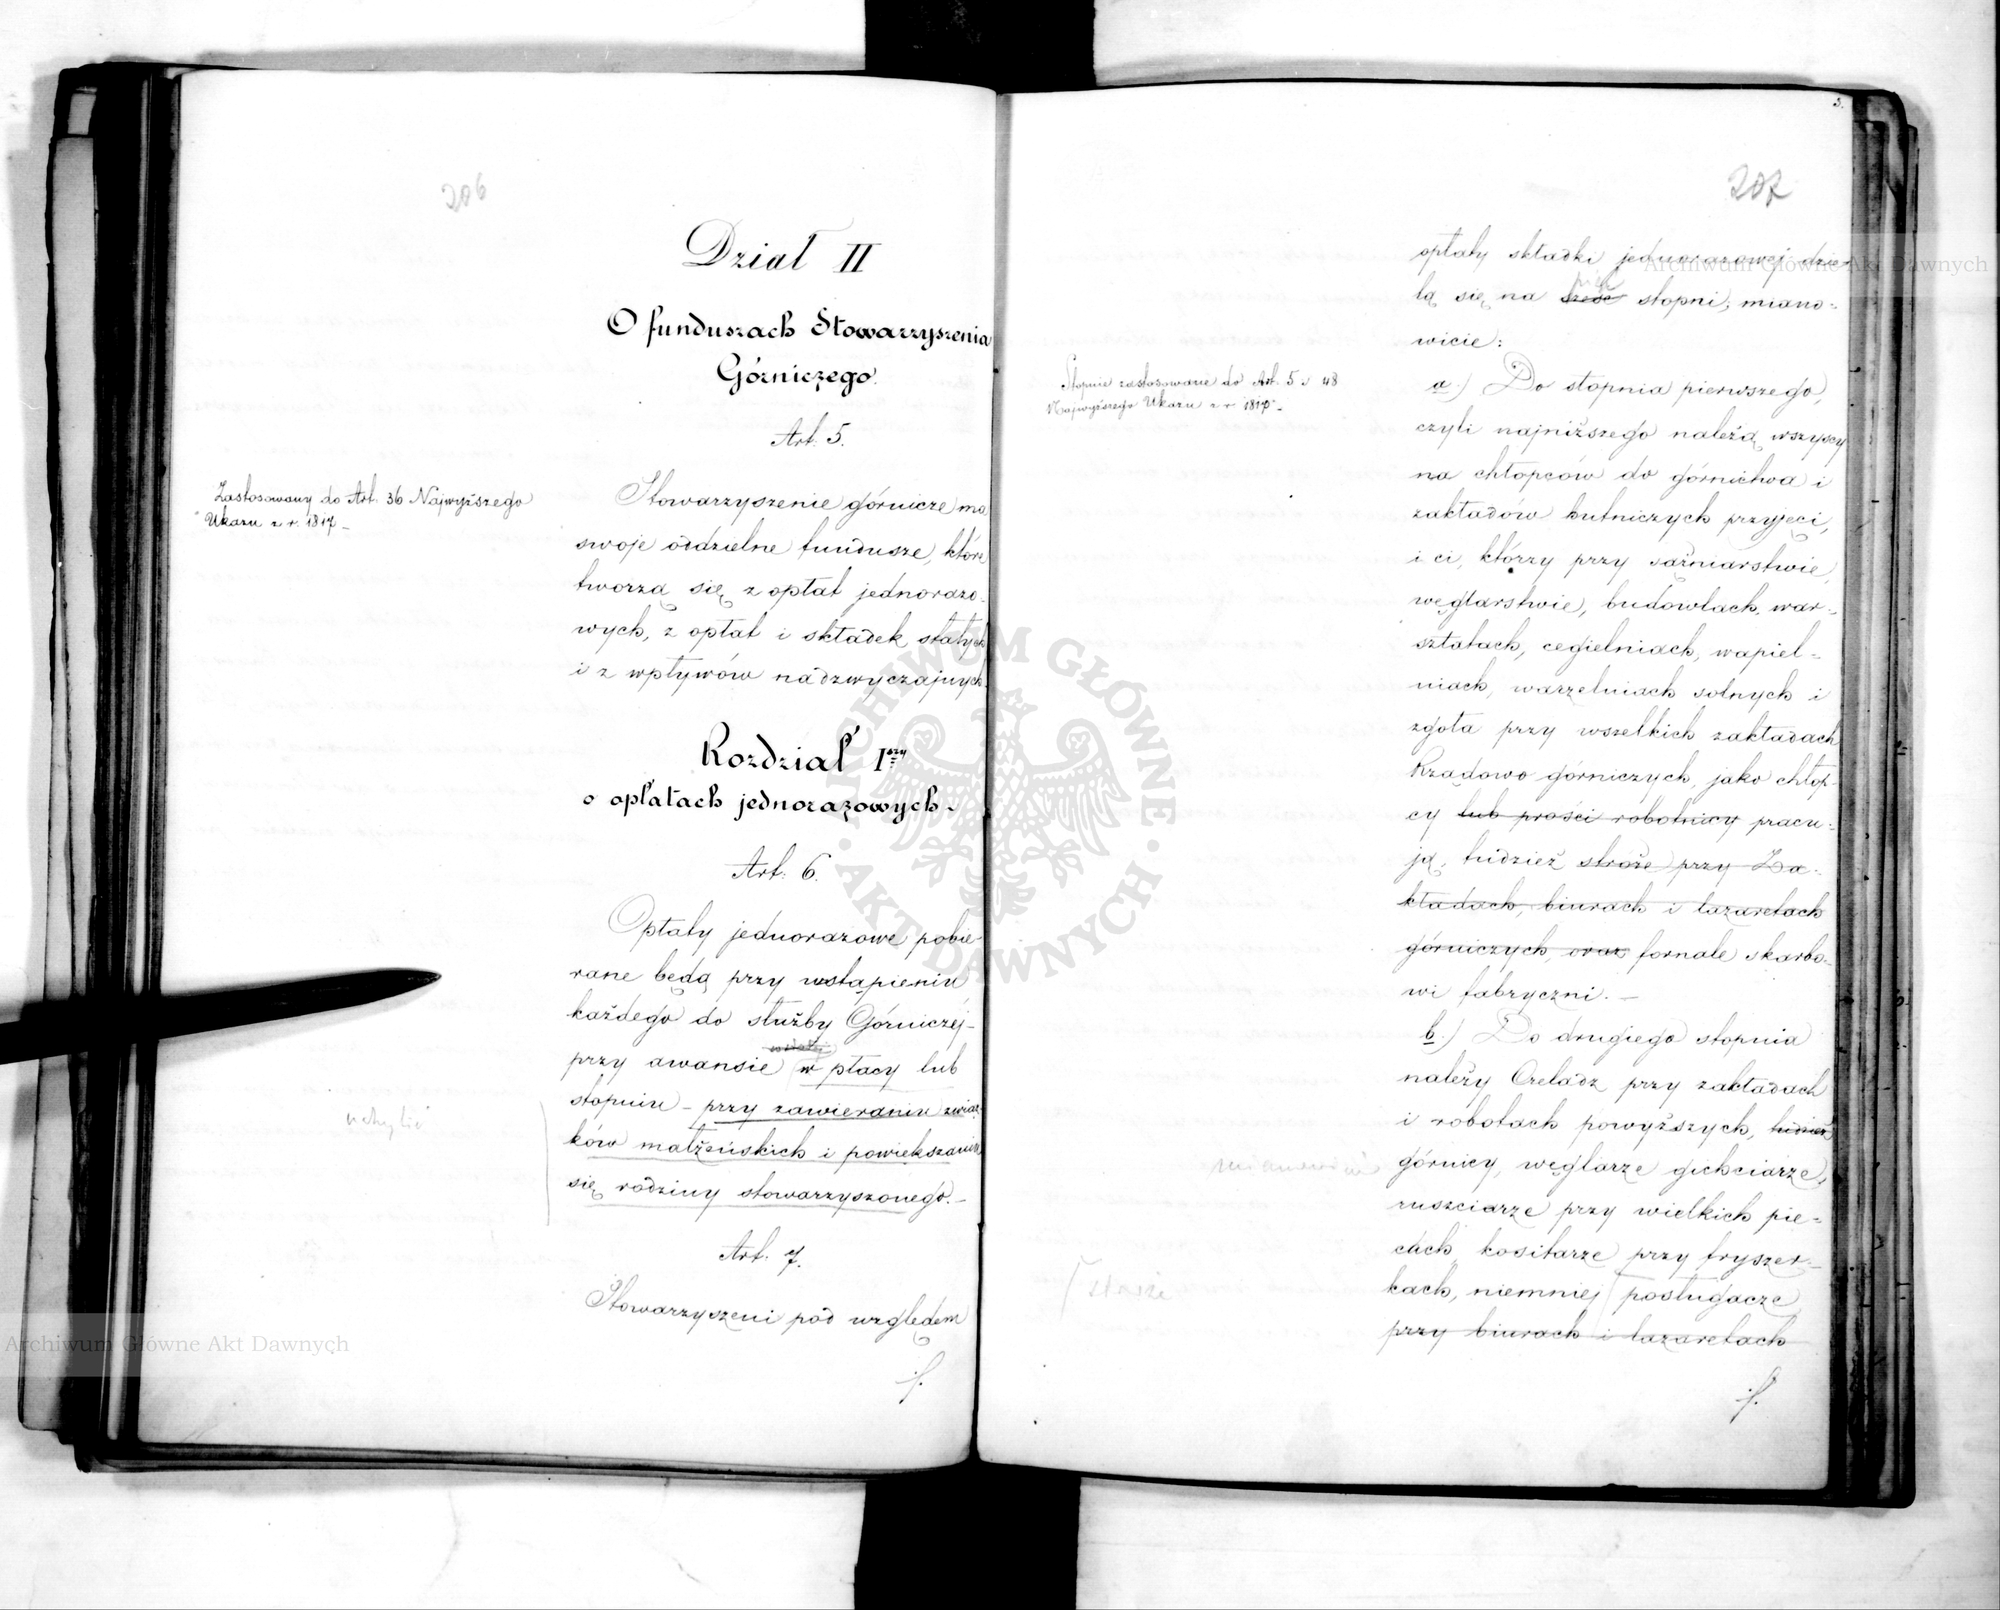 206
Dział II
O funduszach Stowarzyszenia
Górniczego.
Art. 5.
Zastosowany do Art. 36 Najwyższego
Ukazu z r. 1817 -
Stowarzyszenie górnicze ma
swoje oddzielne fundusze, które
tworzą się z opłat jednorazo-
wych, z opłat i składek stałych
i z wpływów nadzwyczajnych.
Rozdział Iszy
o opłatach jednorazowych -
Art. 6.
Opłaty jednorazowe pobie-
rane będą przy wstąpieniu
każdego do służby Górniczej -
przy awansie w płacy lub
stopniu - przy zawieraniu związ-
ków małżeńskich i powiększaniu
się rodziny stowarzyszonego. -
uchylić
Art. 7.
Stowarzyszeni pod względem
./.
3.
207
opłaty składki jednorazowej dzie-
lą się na sześć stopni; miano-
wicie:
Stopnie zastosowane do Art. 5 i 48
Najwyższego Ukazu z r. 1817 -
a.) Do stopnia pierwszego,
czyli najniższego należą wszyscy
na chłopców do górnictwa i
zakładów hutniczych przyjęci,
i ci, którzy przy sążniarstwie,
węglarstwie, budowlach, war-
sztatach, cegielniach, wapiel-
niach, warzelniach solnych i
zgoła przy wszelkich zakładach
Rządowo górniczych, jako chłop-
cy lub prości robotnicy pracu-
ją, tudzież stróże przy Za-
kładach, biurach i lazaretach
górniczych, oraz fornale skarbo-
wi fabryczni. -
b.) Do drugiego stopnia
należy Czeladź przy zakładach
i robotach powyższych, tudzież
mianowicie
górnicy, węglarze gichciarze,
ruszciarze przy wielkich pie-
cach, kositarze przy fryszer-
kach, niemniej posługacze
stróże
przy biurach i lazaretach
./.
ARCHIWUM GŁÓWNE
AKT DAWNYCH
Archiwum Główne Akt Dawnych
Archiwum Główne Akt Dawnych